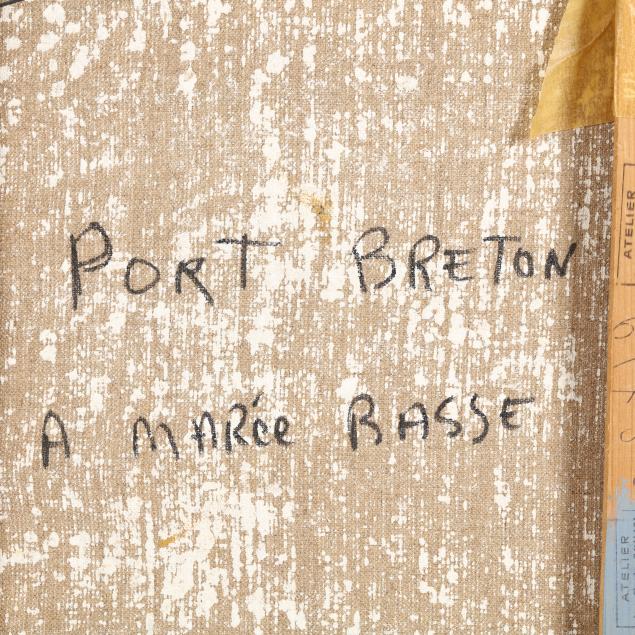 PORT BRETON
A MARée BASSE
ATELIER
ATELIER